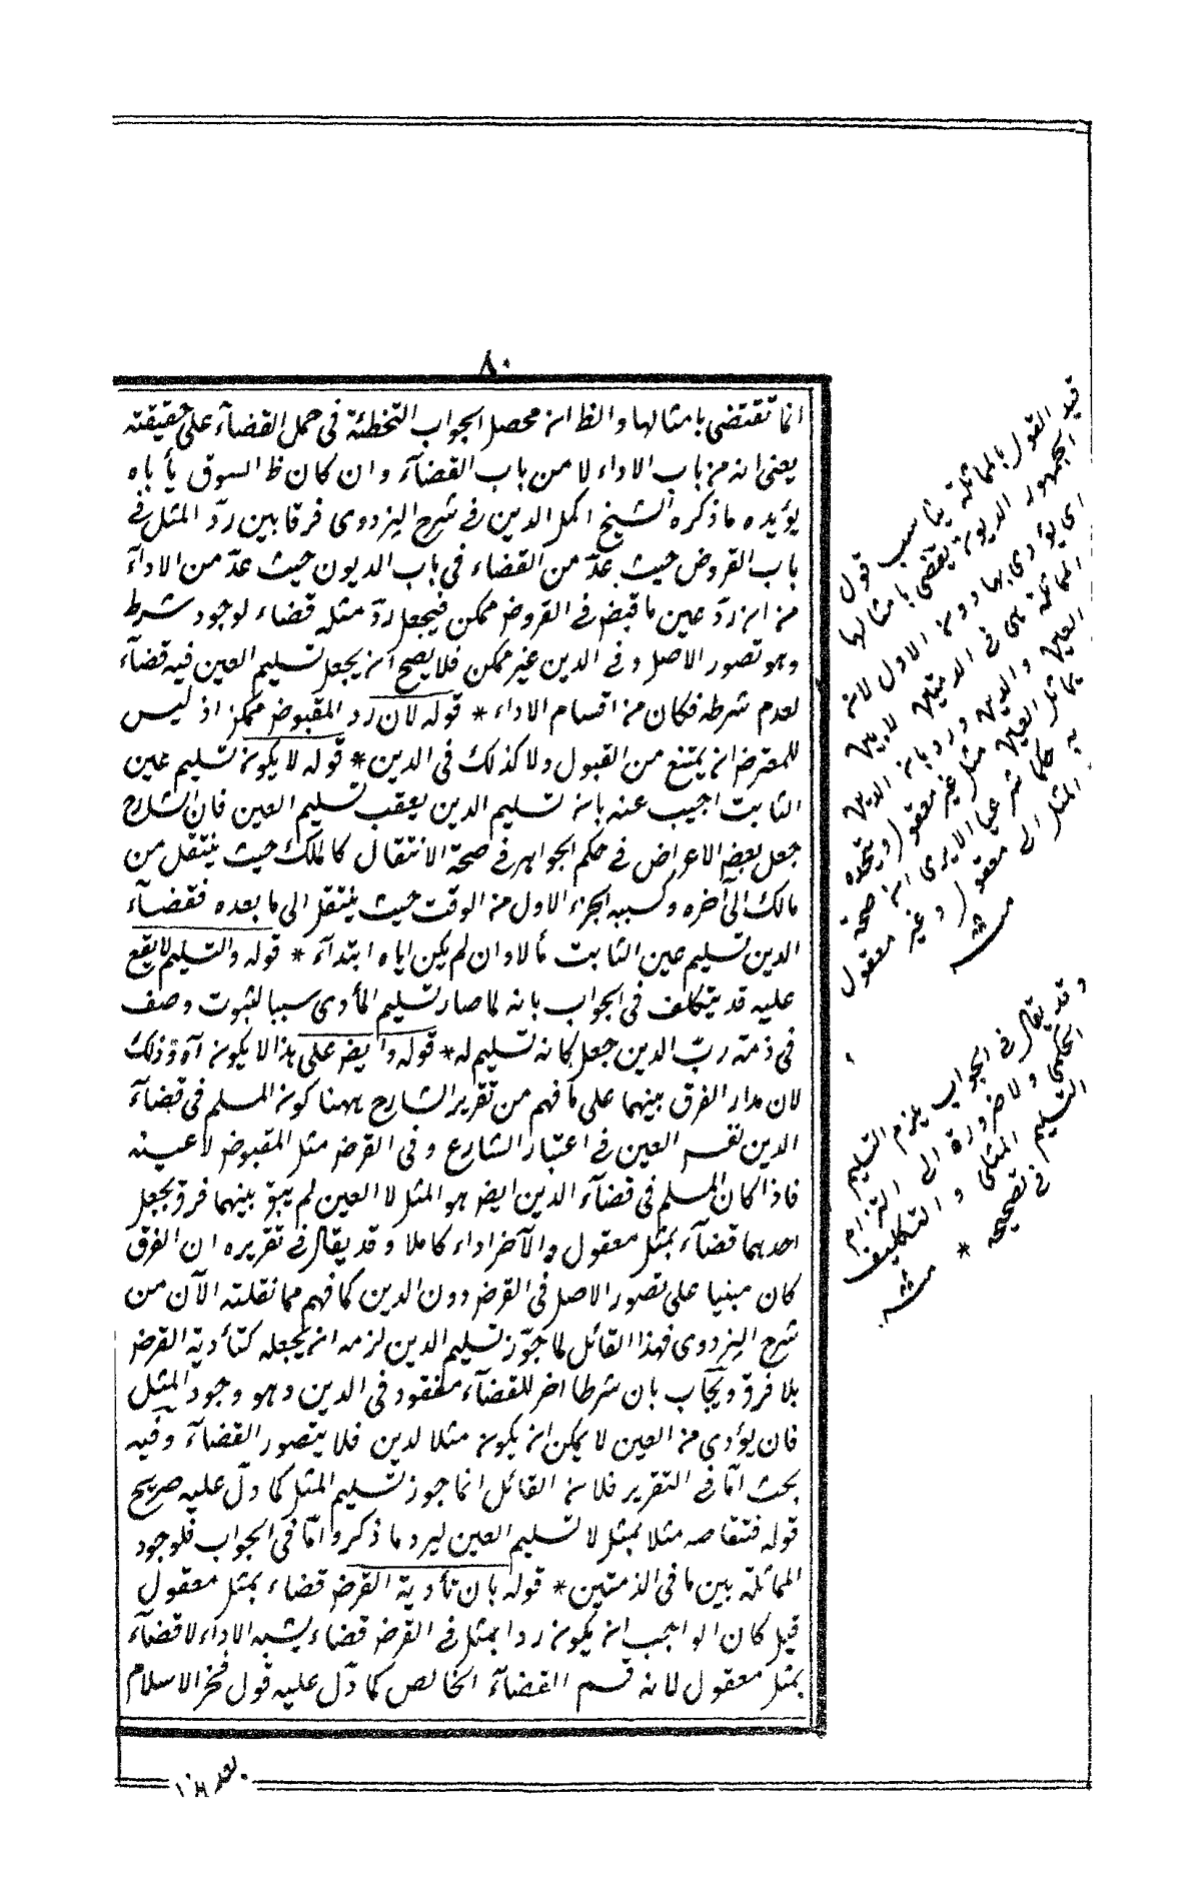 ٨٠
انما تقتضى بامثالها والظ ان محصل الجواب التخطئة فى حمل القضآء على حقيقته
يعنى انه من باب الاداء لا من باب القضآء وان كان ظ السوق يأباه
يؤيده ما ذكره الشيخ اكمل الدين فى شرح البزدوى فرقا بين ردّ المثل فى
باب القروض حيث عدّ من القضاء فى باب الديون حيث عدّ من الادآء
من ان ردّ عين ما قبض فى القروض ممكن فيجعل ردّ مثله قضاء لوجود شرطه
وهو تصور الاصل وفى الدين غير ممكن فلا يصح ان يجعل تسليم العين فيه قضآء
لعدم شرطه فكان من اقسام الاداء * قوله لان رد المقبوض ممكن اذ ليس
للمقرض ان يمتنع من القبول ولا كذلك فى الدين * قوله لا يكون تسليم عين
الثابت اجيب عنه بان تسليم الدين يعقب تسليم العين فان الشارح
جعل بعض الاعراض فى حكم الجواهر فى صحة الانتقال كالملك حيث ينتقل من
مالك الى آخره وكسببه الجزء الاول من الوقت حيث ينتقل الى ما بعده فقضآء
الدين تسليم عين الثابت مآلا وان لم يكن اياه ابتدآء * قوله والتسليم لا يقع
عليه قد يتكلف فى الجواب بانه لما صار تسليم المأدى سببا لثبوت وصف
فى ذمة ربّ الدين جعل كانه تسليم له * قوله وايض على هذا لا يكون آه وذلك
لان مدار الفرق بينهما على ما فهم من تقرير الشارح ههنا كون المسلم فى قضآء
الدين نفس العين فى اعتبار الشارع وفى القرض مثل المقبوض لا عينه
فاذا كان المسلم فى قضآء الدين ايض هو المثل لا العين لم يبق بينهما فرق يجعل
احدهما قضآء بمثل معقول والآخر اداء كاملا وقد يقال فى تقريره ان الفرق
كان مبنيا على تصور الاصل فى القرض دون الدين كما فهم مما نقلته الآن من
شرح البزدوى فهذا القائل لما جوّز تسليم الدين لزمه ان يجعله كتأدية القرض
بلا فرق ويجاب بان شرطا اخر للقضآء مفقود فى الدين وهو وجود المثل
فان يؤدى من العين لا يمكن ان يكون مثلا لدين فلا يتصور القضآء وفيه
بحث امّا فى التقرير فلان القائل انما جوز تسليم المثل كما دلّ عليه صريح
قوله فتقاصه مثلا بمثل لا تسليم العين ليرد ما ذكر وامّا فى الجواب فلوجود
المماثلة بين ما فى الذمتين * قوله بان تأدية القرض قضاء بمثل معقول
قيل كان الواجب ان يكون ردا بمثل فى القرض قضاء يشبه الاداء لا قضآء
بمثل معقول لانه قسم القضآء الخالص كما دّل عليه قول فخر الاسلام
قيد القول بالمماثلة يناسب قول
الجمهور الديون تقضى بامثالها
اى يؤدى بها دون الاول لانه
المماثلة هى فى الدينين لا بين
العين والدين ورد بانه الدين
تماثل العين مثل غير معقول ويتحده
به حكما شرعيا الا يرى ان صحة
المثل الى معقول وغير معقول
منه
وقد يقال فى الجواب يلزم التسليم
الحكمى ولا ضرورة الى التزام
التسليم المثلى والتكليف
فى تصحيحه * منه